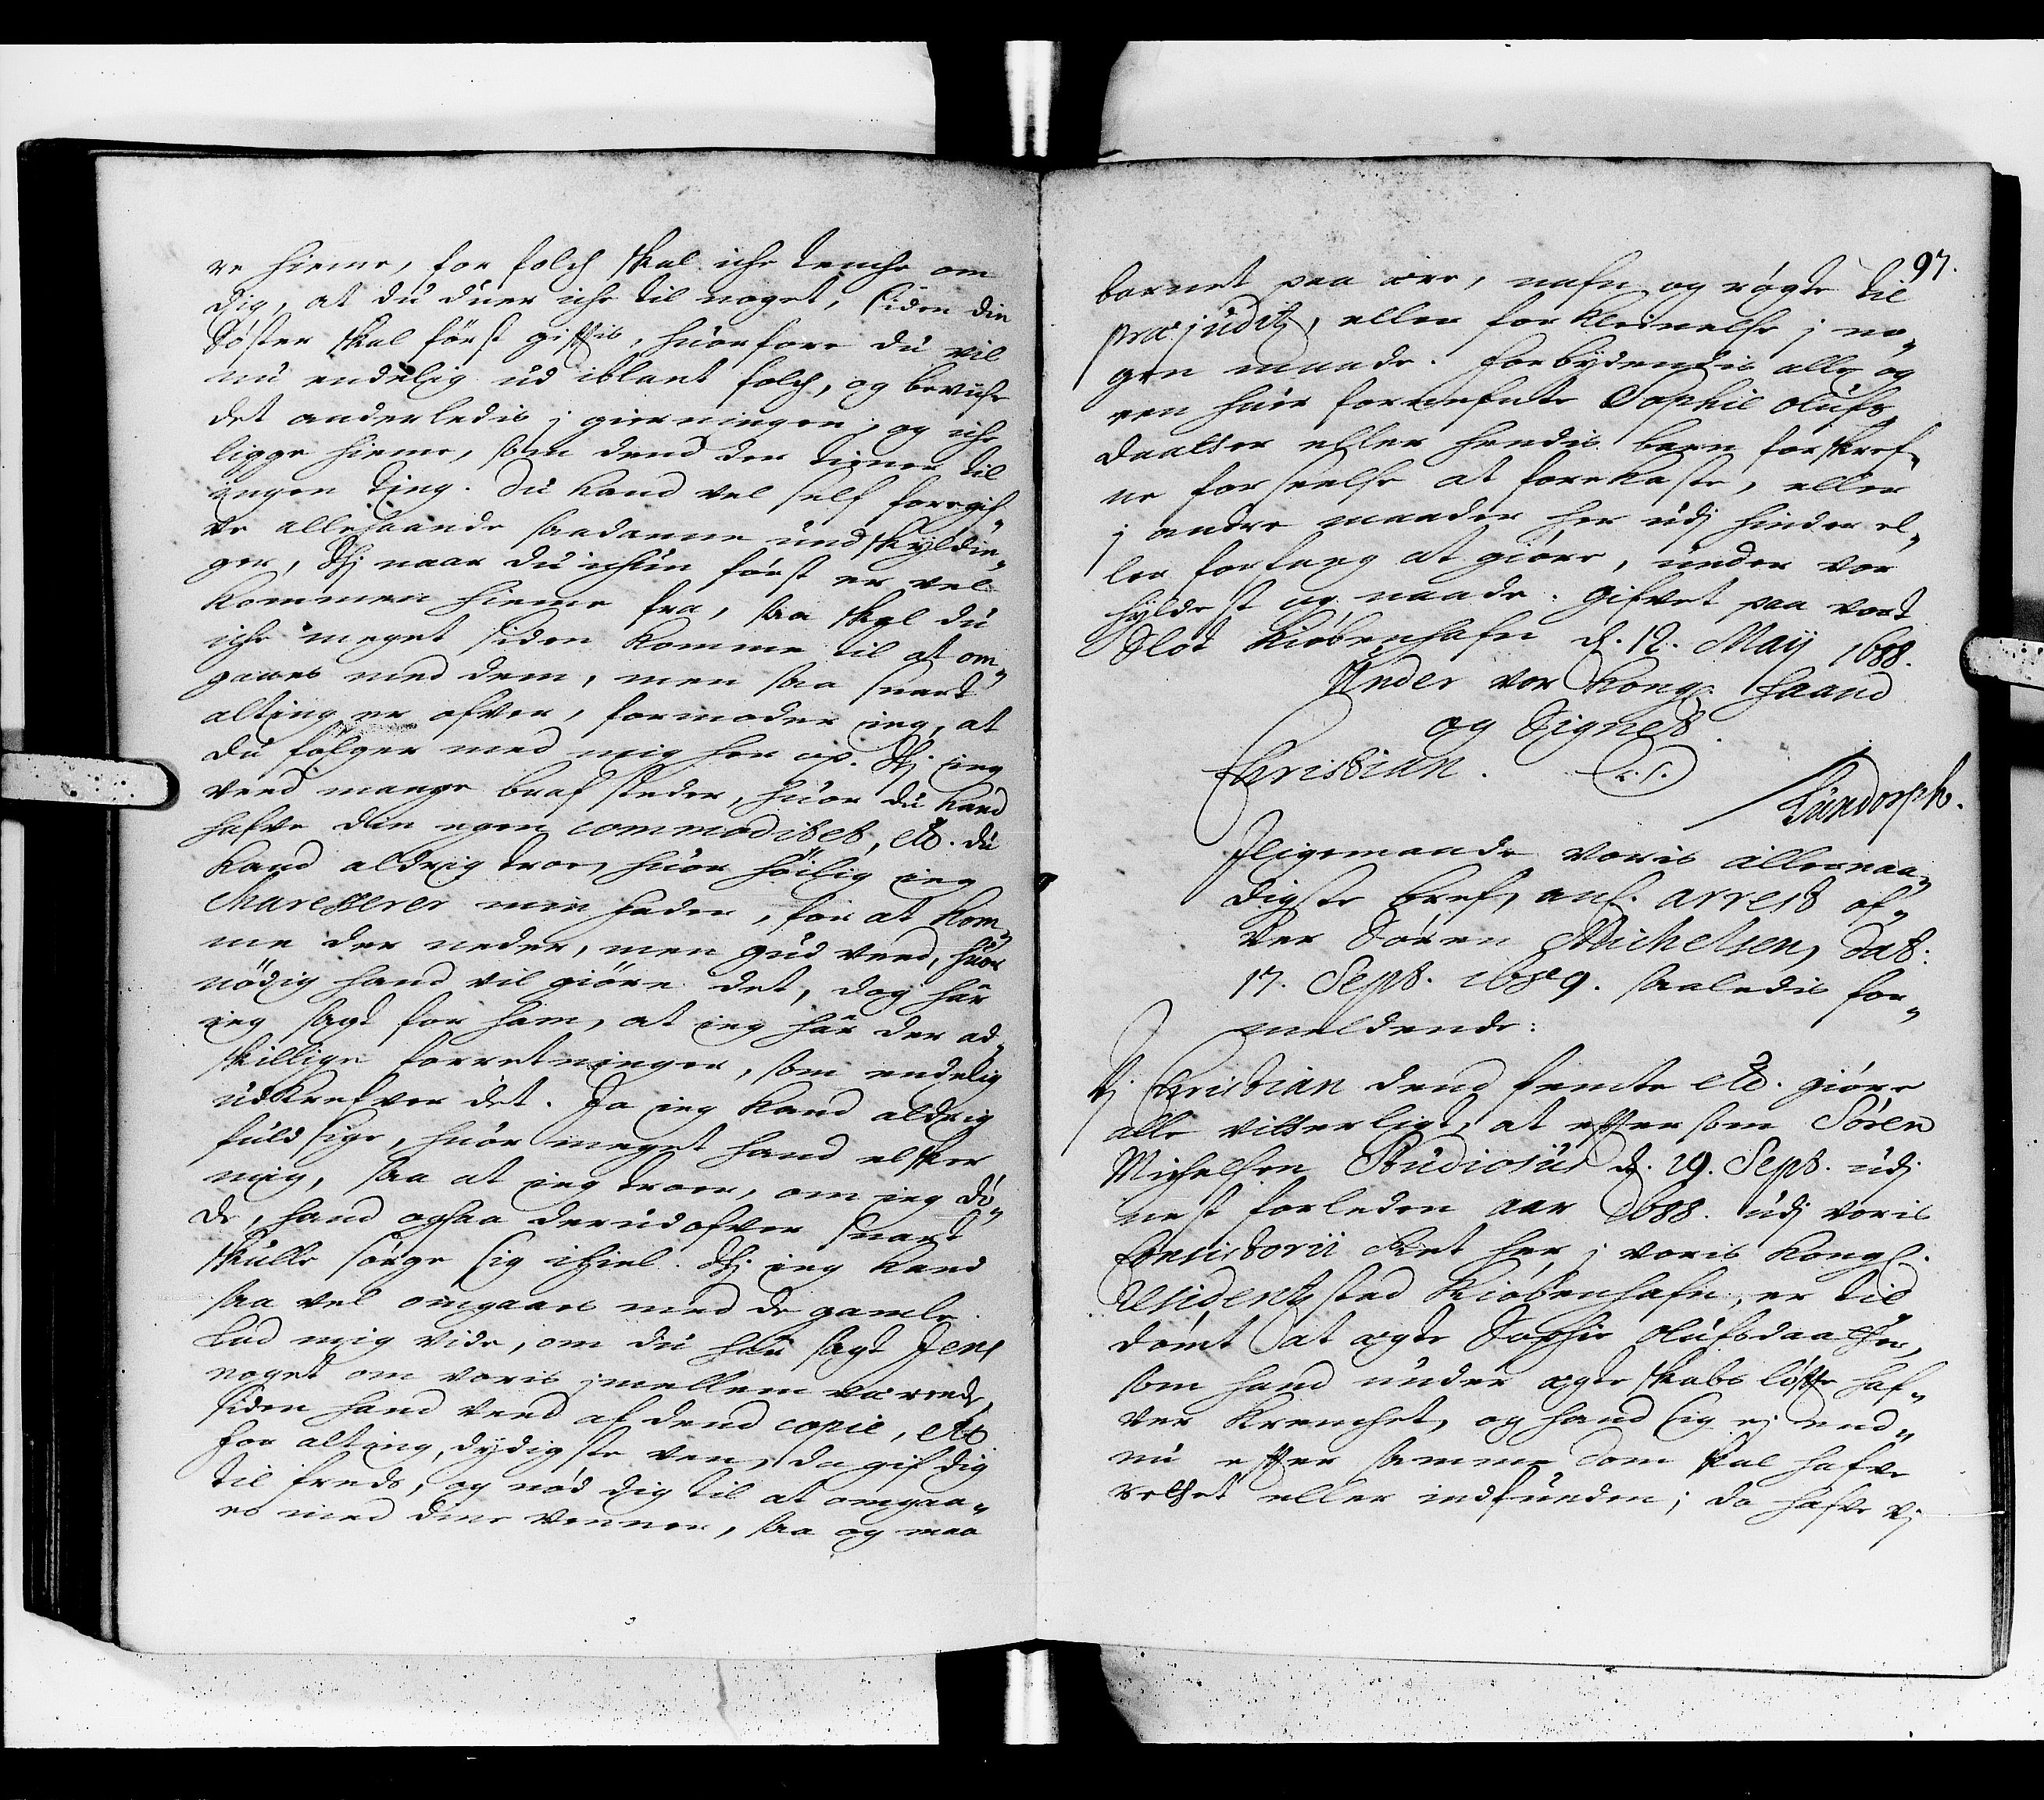 re hieme, for folch skal iche tenche om
dig, at du duer iche til noget, siden din
Søster skal först giftis, huorfore du vil
nu endelig ud iblant folch, og beviise
det anderledis j gierningen, og iche
ligge hieme, som dend der tiener til
ingen ting. Du kand vel self foregif„
ve allehaande saadanne undskyldin„
ger, thj naar du ichun först er vel
kommen hieme fra, saa skal du
iche meget siden komme til at om„
gaaes med dem, men saa snart
alting er ofver, formoder ieg, at
du følger med mig her op. Thj ieg
veed mange braf steder, huor du kand
hafve din egen commoditet, etc. du
kand aldrig troe, huor höilig ieg
Charesserer min fader, for at kom„
me der neder, men gud veed, huor
nödig hand vil giöre det, dog har
ieg sagt for ham, at ieg har der ad„
skillige forretninger, som endelig
udkrefver det. Ja ieg kand aldrig
fuld sige, huor meget hand elsker
mig, saa at ieg troer, om ieg dö„
de, hand ogsaa derudofver snart
skulle sørge sig ihiel. Thj ieg kand
saa vel omgaaes med de gamle.
Lad mig vide, om du har sagt Jens
noget om voris jmellem værende,
siden hand veed af dend copie, etc
for alting, dydigste ven, da gif dig
til freds, og nød dig til at omgaa„
es med dine venner, saa og maa
97.
barnet paa ære, nafn og røgte til
præjuditz, eller forkleinelse j no„
gen maade. forbydendis alle og
een huer forneefnte Sophie Olufs
daatter eller hendis barn forskref„
ne forseelse at forekaste, eller
j andre maader her udj hinder el„
ler forfang at giöre, under vor
hyldest og naade. gifvet paa vort
Slot Kiöbenhafn d. 12. Maij 1688.
Under vor Kongl. haand
og Signet.
Christian. L.S.
Lundorph.
Jligemaade voris allernaa„
digste bref, anl. arrest of„
ver Sören Michelsen, dat:
17. Sept. 1689. saaledis for„
meldende:
Vj Christian dend femte etc. giöre
alle vitterligt, at eftersom Sören
Michelsen Studiosus d. 29. Sept. udj
nest forleden aar 1688. udj voris
Consistorii Ret her j voris Kongl.
residentzstad Kiöbenhafn, er til
dömt at ægte Sophie Olufsdaatter,
som hand under ægteskabs löfte haf„
ver krenchet, og hand sig ej end„
nu efter samme dom skal hafve
rettet eller indfunden; da hafve vj